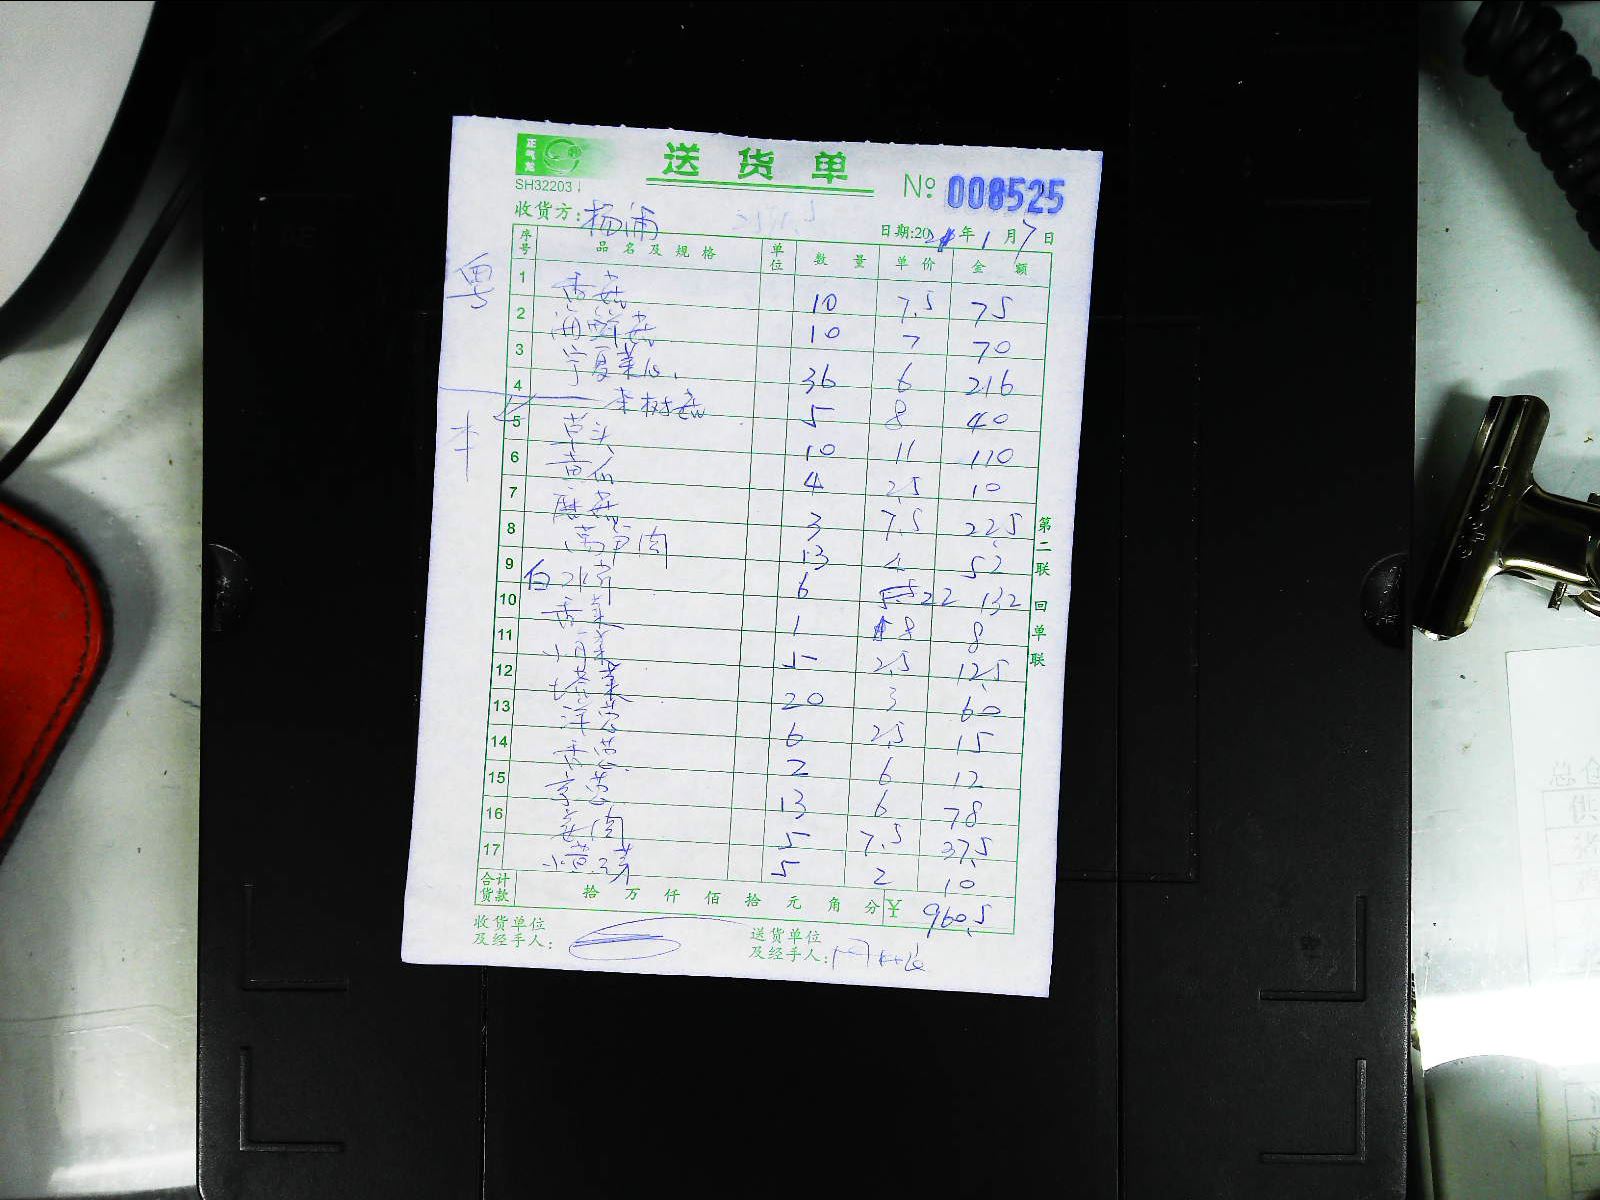 正气龙
送货单
№ 008525
SH32203
收货方: 杨浦
日期:2021年1月7日
序号 品名及规格 单位 数量 单价 金额
粤
1 香菇 10 7.5 75
2 海鲜菇 10 7 70
3 宁夏菜心 36 6 216
4 茶树菇 5 8 40
本
5 草头 10 11 110
6 黄瓜 4 2.5 10
7 蘑菇 3 7.5 22.5
8 莴笋肉 13 4 52
9 白水芹 6 22 132
10 香菜 1 8 8
11 小青菜 5 2.5 12.5
12 塔菜 20 3 60
13 洋葱 6 2.5 15
14 香葱 2 6 12
15 京葱 13 6 78
16 姜肉 5 7.5 37.5
17 小黄豆芽 5 2 10
合计货款 拾 万 仟 佰 拾 元 角 分 ¥ 960.5
收货单位及经手人:
送货单位及经手人:
第二联 回单联